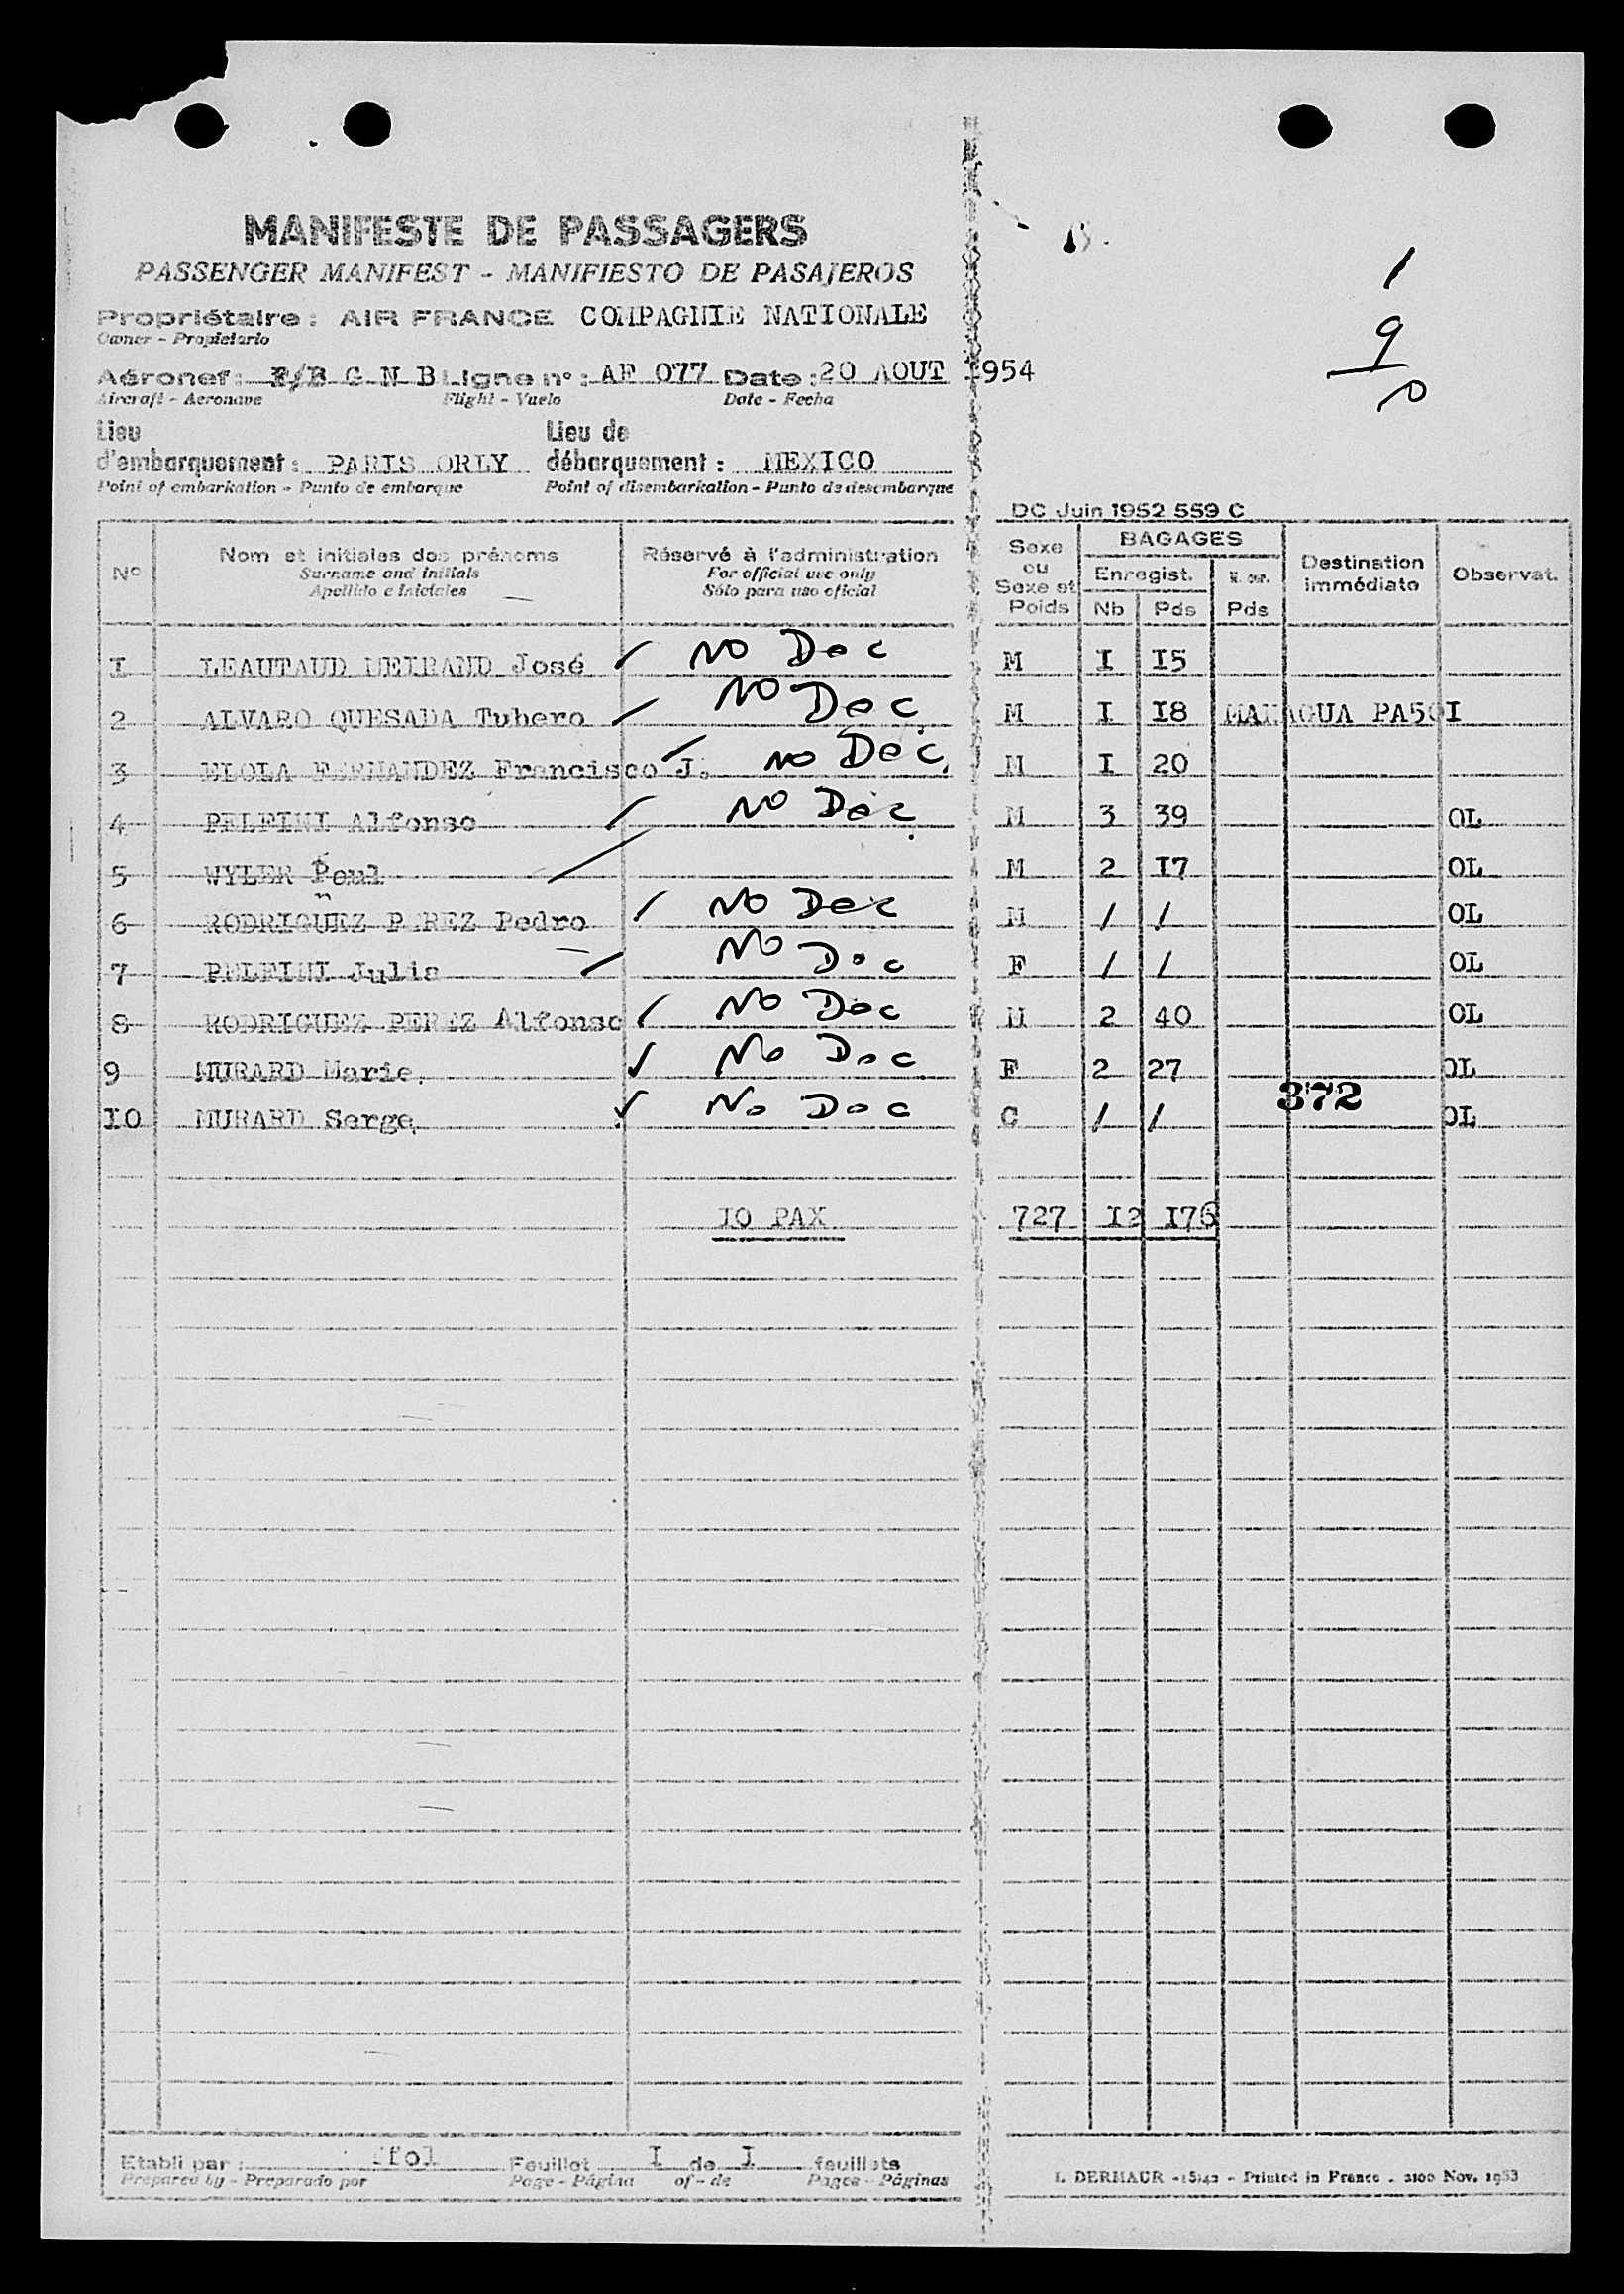 MANIFESTE DE PASSAGERS
PASSENGER MANIFEST - MANIFIESTO DE PASAJEROS
Propriétaire : AIR FRANCE COMPAGNIE NATIONALE
Owner - Propietario
Aéronef : F/B G N B Ligne n° : AF 077 Date : 20 AOUT 1954
Aircraft - Aeronave Flight - Vuelo Date - Fecha
1
9
10
Lieu Lieu de
d'embarquement : PARIS ORLY débarquement : MEXICO
Point of embarkation - Punto de embarque Point of disembarkation - Punto de desembarque
DC Juin 1952 559 C
N° Nom et initiales des prénoms Réservé à l'administration Sexe ou Sexe et Poids BAGAGES Destination immédiate Observat.
Surname and initials For official use only Enregist.
Apellido e iniciales Sólo para uso oficial Nb Pds Pds
I LEAUTAUD José NO Doc M I I5
2 ALVARO QUESADA Tubero NO Doc M I I8 MANAGUA PA50I
3 ELOLA FERNANDEZ Francisco J. NO Doc. M I 20
4 PELFINI Alfonso NO Doc. M 3 39 OL
5 WYLER Poul M 2 I7 OL
6 RODRIGUEZ PEREZ Pedro NO Doc M / / OL
7 PELFINI Julia NO Doc F / / OL
8 RODRIGUEZ PEREZ Alfonso NO Doc M 2 40 OL
9 MURARD Marie. No Doc F 2 27 OL
372
IO MURARD Serge. No Doc C / / OL
IO PAX 727 I2 I76
Etabli par : Feuillet I de I feuillets
Prepared by - Preparado por Page - Página of - de Pages - Páginas
L. DERMAUR - Printed in France - 2100 Nov. 1953